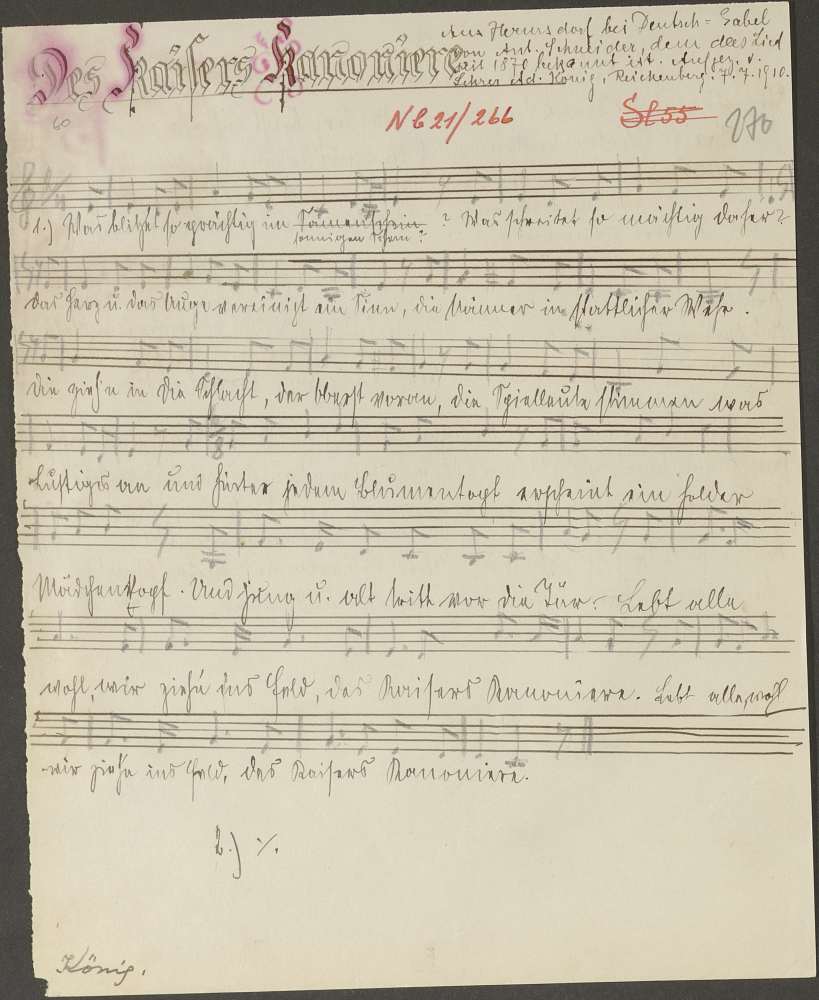 Des Kaisers Kanoniere
Aus Hermsdorf bei Deutsch-Gabel
von Ant. Schneider, dem das Lied
seit 1870 bekannt ist. Aufgez. v.
Lehrer Ad. König, Reichenberg. 7.7.1910.
60
N b 21/266
St 55
270
1.) Was blitzet so prächtig im Sonnenschein ? Was schreitet so mächtig daher?
sonnigen Schein?
das Herz u. das Auge vereinigt ein Sinn, die Männer in stattlicher Wehr.
Die zieh'n in die Schlacht, der Oberst voran, die Spielleute stimmen was
Lustiges an und hinter jedem Blumentopf erscheint ein holder
Mädchenkopf. Und Jung u. alt tritt vor die Tür. Lebt alle
wohl, wir zieh'n ins Feld, des Kaisers Kanoniere. Lebt alle, wohl
wir zieh'n ins Feld, des Kaisers Kanoniere.
2.) ·/.
König.